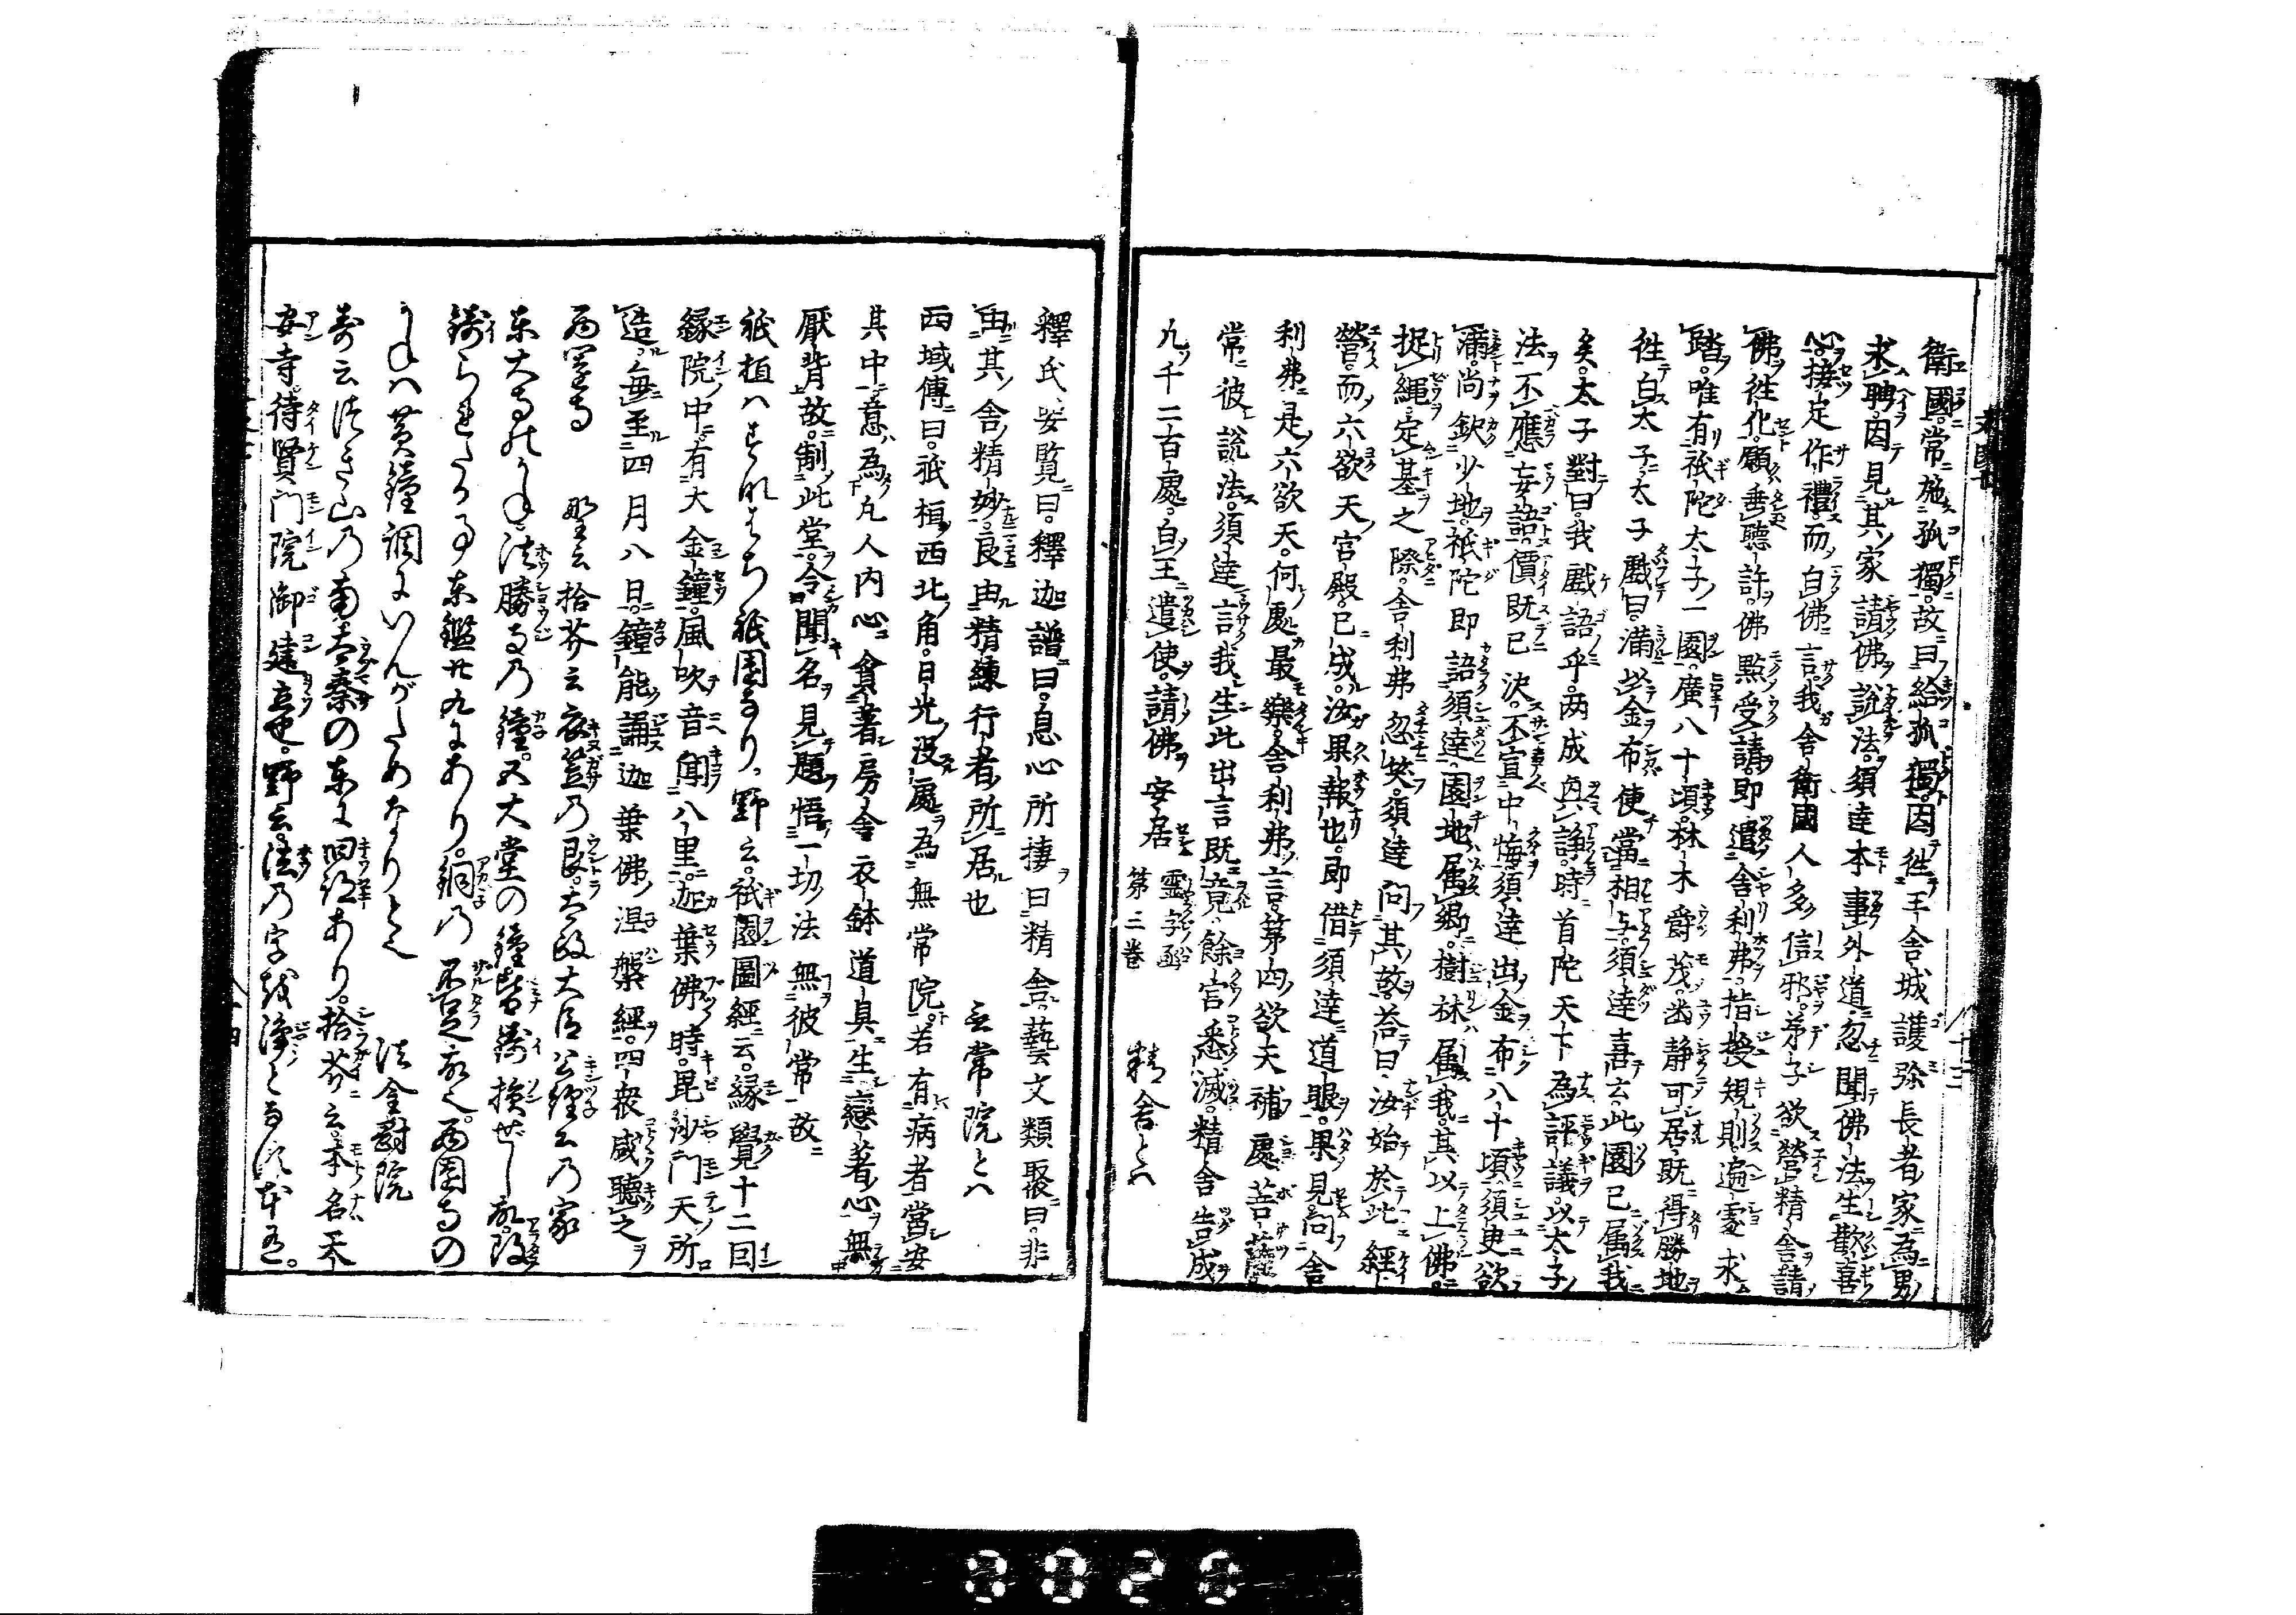 衛國常施孤獨故曰給孤獨因往王舎城護弥長者家為男
求聘因見其家請佛說法須達本事外道忽聞佛法生歡喜
心接定作禮而白佛言我舎衛國人多信邪弟子欲營精舎請
佛往化願垂聽許佛點受請即遣舎利弗指授規則遍處求
踏唯有祇陀太子一園廣八十頃林木欝茂幽静可居既得勝地
往白太子太子戲曰滿以金布使當相与須達喜云此園已属我
矣太子對曰我戲語乎両成與諍時首陀天下為評議以太子
法不應妄語價既已決不宜中悔須達出金布八十頃須臾欲
滿尚欽少地祇陀即語須達園地属卿樹林属我其以上佛
捉繩定基之際舎利弗忽笑須達問其故荅曰汝始於此經
營而六欲天官殿已成汝果報也即借須達道眼果見問舎
利弗是六欲天何處最樂舎利弗言第四欲天補處菩薩
常彼說法須達言我生此出言既竟餘官悉滅精舎告成
九千二百處白王遣使請佛安居 霊字函第三巻 精舎とハ
釋氏要覧曰釋迦譜曰息心所捿曰精舎藝文類聚曰非
由其舎精妙良由精練行者所居也 無常院とハ
西域傳曰祇桓西北角日光没處為無常院若有病者當安
其中意為凡人内心貪著房舎衣鉢道具生戀著心無
厭背故制此堂令聞名見題悟一切法無彼常故
祇植ハすなはち祇園なり野云祇園圖經云縁覺十二回
縁院中有大金鐘風吹音聞八里迦葉佛時毘沙門天所
造毎至四月八日鐘能誦迦葉佛涅槃經四衆咸聽之
西園寺 野云拾芥云衣笠乃艮太政大臣公經公乃家
東大寺のかね法勝寺乃鐘五大堂の鐘皆鋳損ぜし故改
鋳られたる事東鑑廿九にあり銅乃不足故也西園寺の
かねハ黄鐘調にいんがためなりとそ 法金剛院
寿云法き山乃南太秦の東に旧跡あり拾芥云本名天
安寺待賢門院御建立也野云法乃字を清てよむ